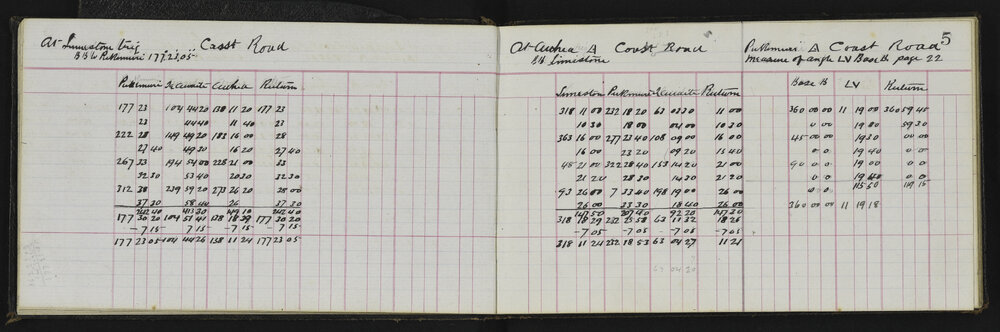 At Limestone trig Casst Road
BS to Pukemuri 177° 23' 05"
Pukemuri Te Awaite Awhea Return
177 23 104 44 20 138 11 20 177 23
23 44 40 11 40 23
222 28 149 49 20 183 16 00 28
27 40 49 30 16 20 27 40
267 33 194 54 00 228 21 00 33
32 30 53 40 20 30 32 30
312 38 239 59 20 273 26 20 38 00
37 20 58 40 26 37 30
242 40 413 30 149 10 242 40
177 30 20 104 51 41 138 18 39 177 30 20
- 7 15 7 15 - 7 15 - 7 15
177 23 05 104 44 26 138 11 24 177 23 05
At Awhea △ Coast Road
BS Limestone
Limestone Pukemuri Te Awaite Return
318 11 00 232 18 20 63 03 30 11 00
10 30 18 00 04 00 10 30
363 16 00 277 23 40 108 09 00 16 00
16 00 23 20 09 20 15 40
45 21 00 322 28 40 153 14 20 21 00
21 20 28 30 14 30 21 20
93 26 00 7 33 40 198 19 00 26 00
26 00 33 30 18 40 26 00
147 50 207 40 92 20 147 30
318 18 29 232 25 58 63 11 32 18 26
- 7 05 - 7 05 - 7 05 - 7 05
318 11 24 232 18 53 63 04 27 11 21
63 04 20
5
Pukemuri △ Coast Road
measure of angle LV Base B page 22
Base B LV Return
360 00 00 11 19 00 360 59 45
0 00 19 00 59 30
45 00 00 19 30 0 0
0 0 19 40 0 0
90 0 0 19 00 0 0
0 0 19 40 0 0
0 0 115 50 119 15
360 00 00 11 19 18